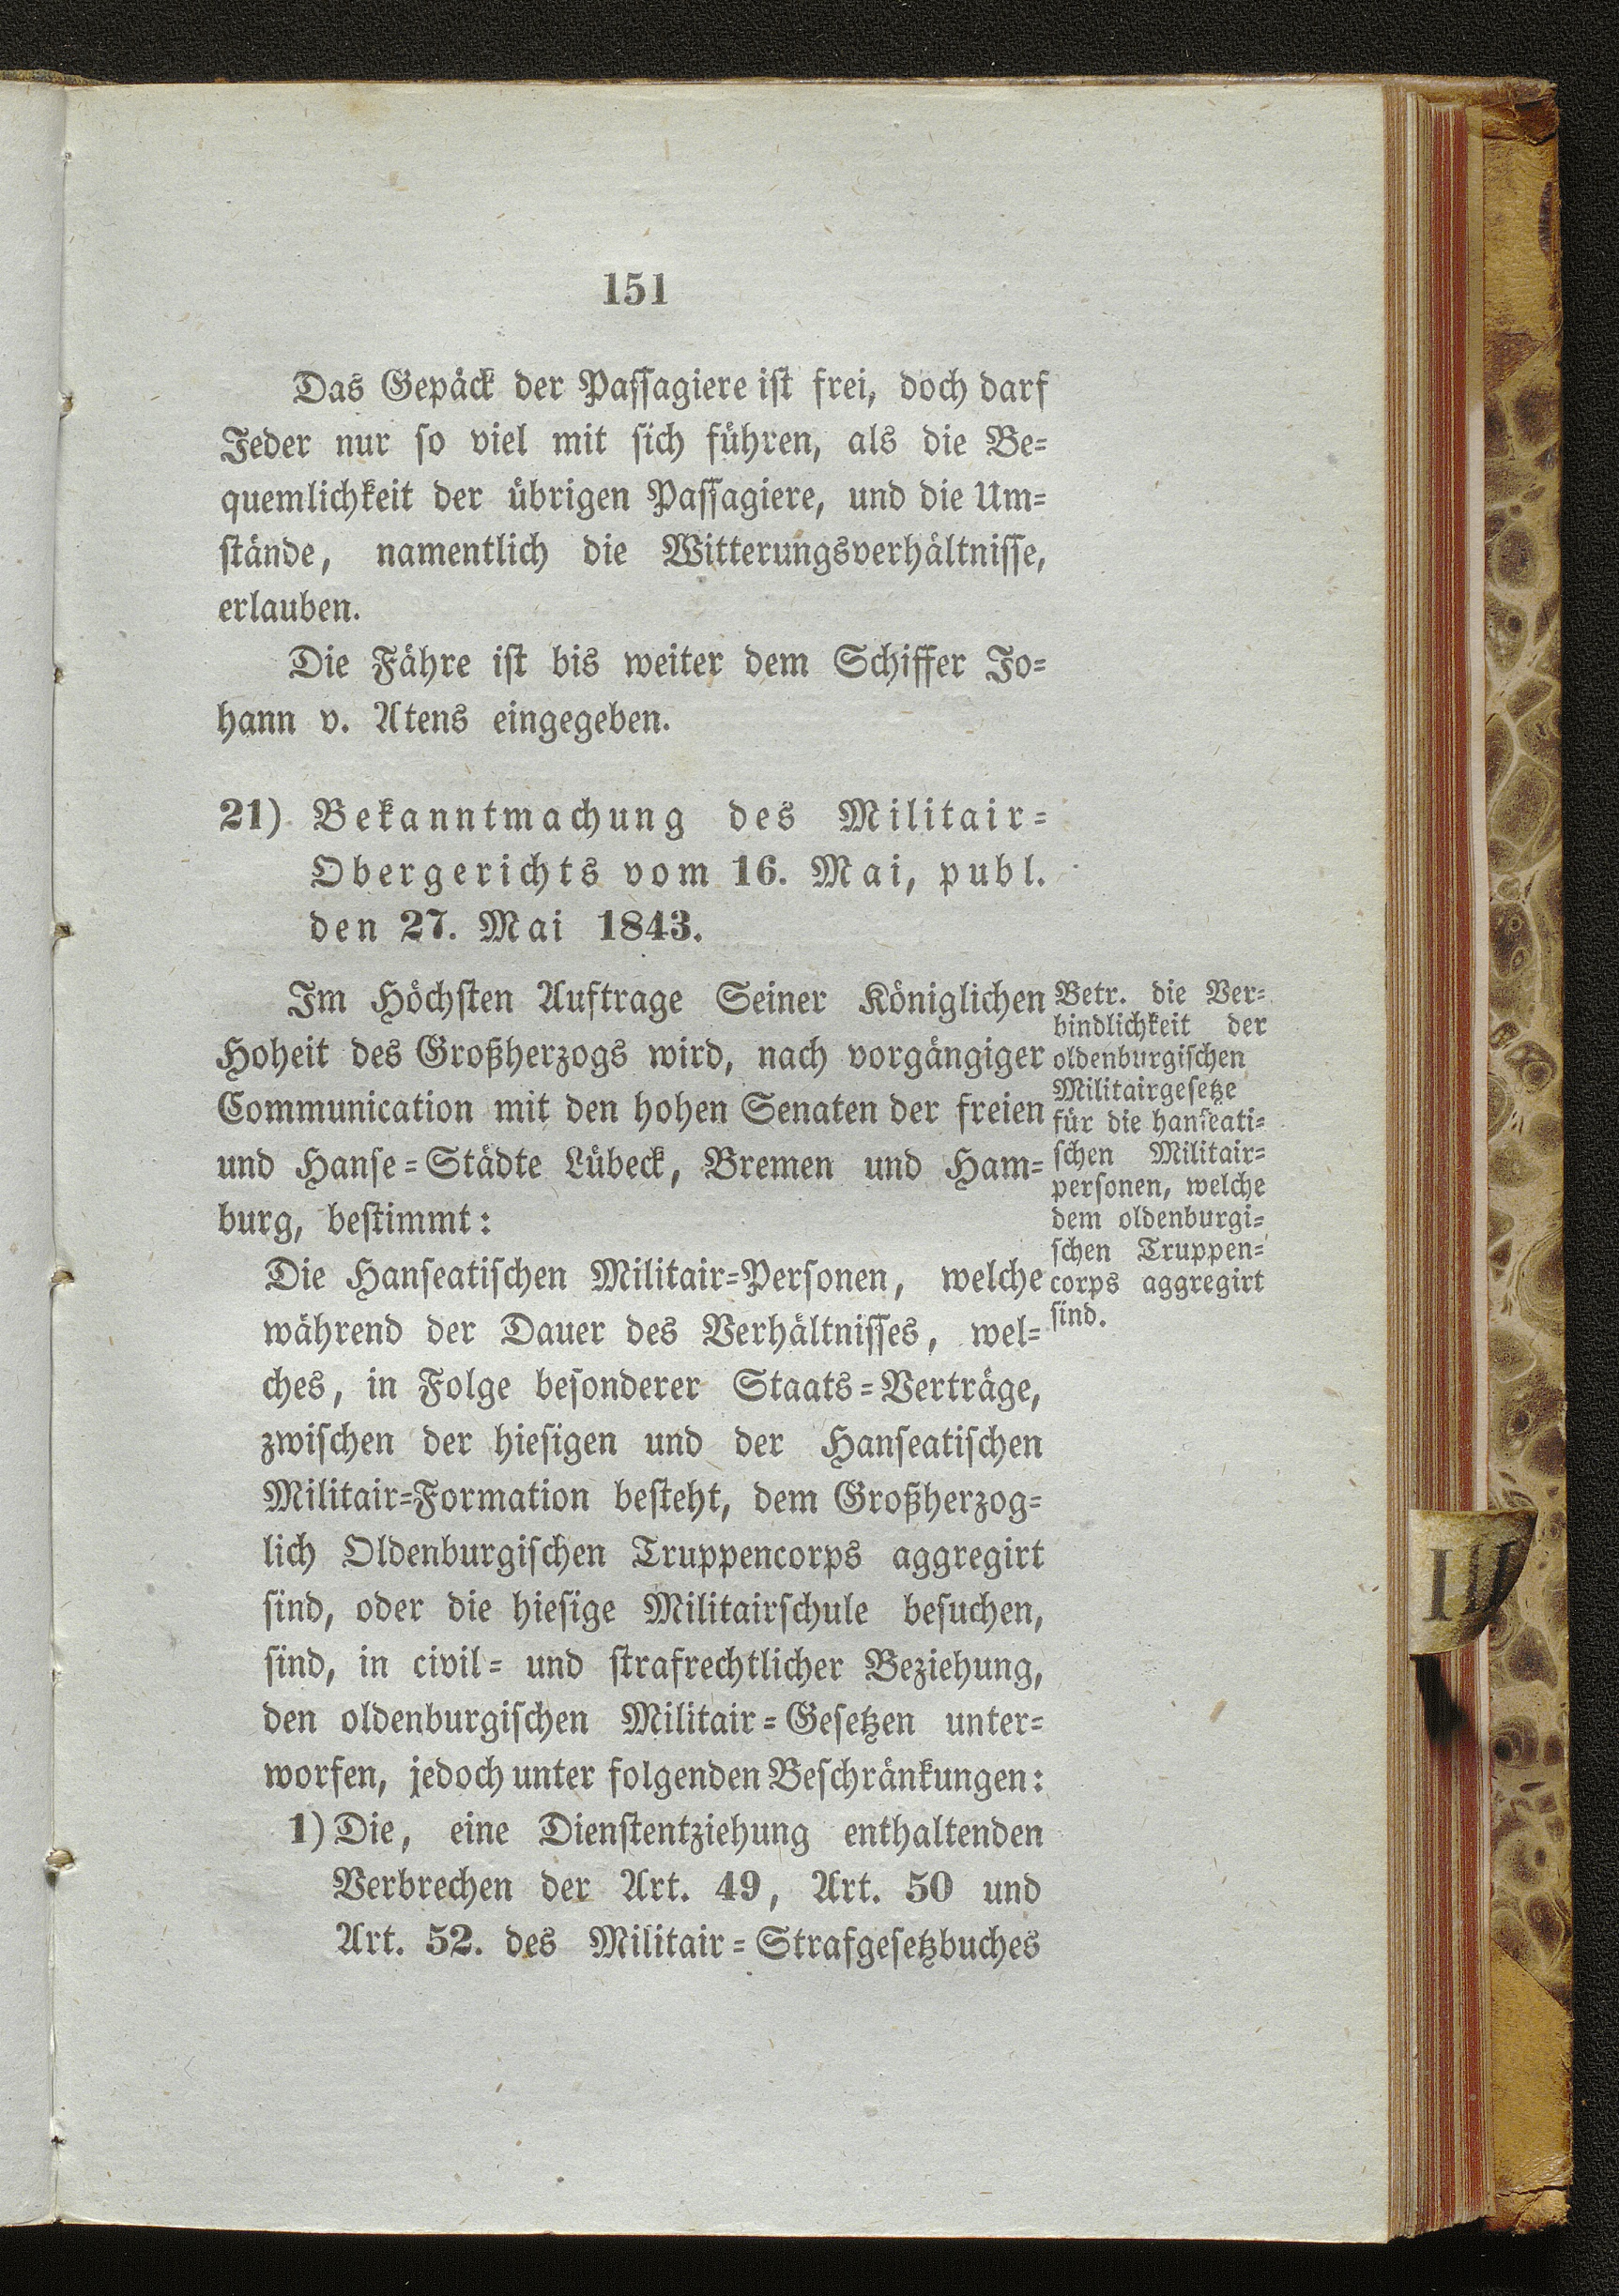 151
Das Gepäck der Passagiere ist frei, doch darf
Jeder nur so viel mit sich führen, als die Be=
quemlichkeit der übrigen Passagiere, und die Um=
stände, namentlich die Witterungsverhältnisse,
erlauben.
Die Fähre ist bis weiter dem Schiffer Jo=
hann v. Atens eingegeben.
21) Bekanntmachung des Militair=
Obergerichts vom 16. Mai, publ.
den 27. Mai 1843.
Im Höchsten Auftrage Seiner Königlichen
Hoheit des Großherzogs wird, nach vorgängiger
Communication mit den hohen Senaten der freien
und Hanse=Städte Lübeck, Bremen und Ham=
burg, bestimmt:
Betr. die Ver=
bindlichkeit der
oldenburgischen
Militairgesetze
für die hanseati=
schen Militair=
personen, welche
dem oldenburgi=
schen Truppen=
corps aggregirt
sind.
Die Hanseatischen Militair=Personen, welche
während der Dauer des Verhältnisses, wel=
ches, in Folge besonderer Staats=Verträge,
zwischen der hiesigen und der Hanseatischen
Militair=Formation besteht, dem Großherzog=
lich Oldenburgischen Truppencorps aggregirt
sind, oder die hiesige Militairschule besuchen,
sind, in civil= und strafrechtlicher Beziehung,
den oldenburgischen Militair=Gesetzen unter=
worfen, jedoch unter folgenden Beschränkungen:
1) Die, eine Dienstentziehung enthaltenden
Verbrechen der Art. 49, Art. 50 und
Art. 52. des Militair=Strafgesetzbuches
III